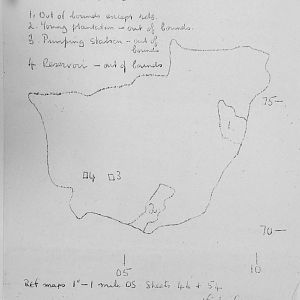 1. Out of bounds except rets.
2. Young plantation – out of bounds.
3 Pumping Station – out of
bounds
4 Reservoir – out of bounds
75 –
1.
4 3
2
70 –
05 10
Ref maps 1" – 1 mile OS Sheets 46 + 54